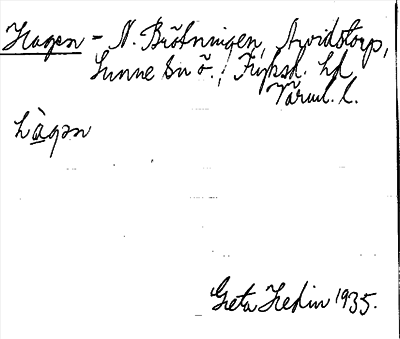 Hagen - N. Brötningen, Arvidstorp,
Sunne sn ö., Fryksd. hd,
Värml. l.
hàgen
Greta Hedin 1935.